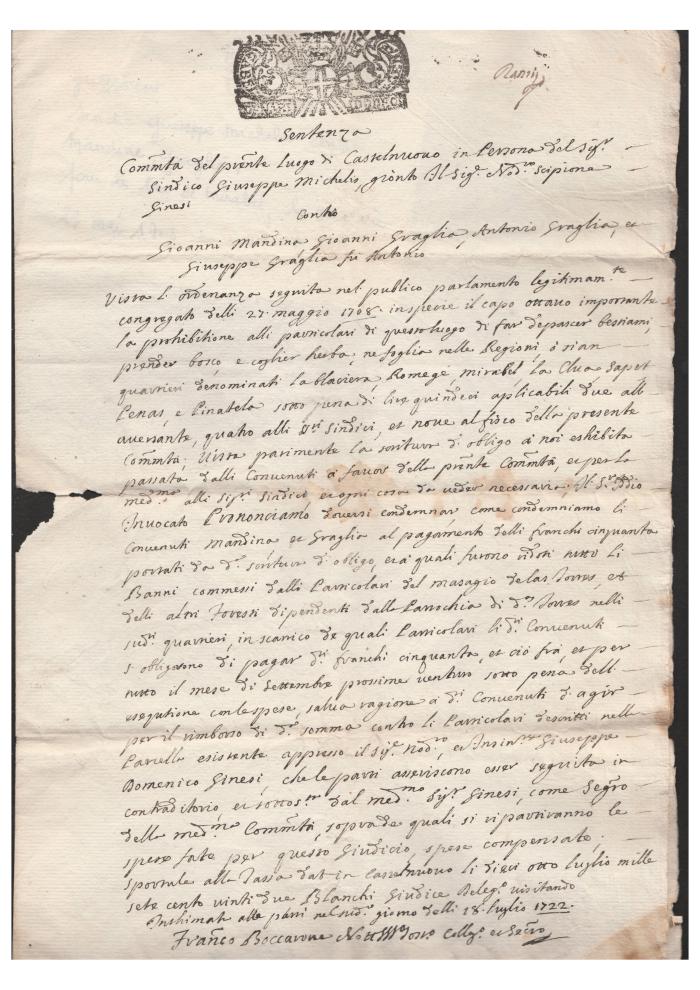 Ramij
Sentenza
Commtà del prnte luogo di Castelnuovo in Persona del Sigr
Sindico Giuseppe Michelis, gionto Il Sigr Nodro Scipione
Ginesi
Contro
Gioanni Mandina Gioanni Graglia, Antonio Graglia, et
Giuseppe Graglia fu Antonio
Vista l'ordenanza seguita nel publico parlamento legitimamte
congregato delli 27 maggio 1708 inspecie il capo ottavo importante
la prohibitione alli particolari di questo luogo di far depascer bestiami,
prender bosco, e coglier herba, ne foglia nelle Regioni, ò sian
quartieri denominati la blaviera, Romegé, mirabel, la Clua Sapet
Penas, e Pinatela sotto pena di lire quindeci applicabili due all
aversante, quatro alli Sri Sindici, et nove al fisco della presente
Commtà; Vista parimente la scritura di obligo à noi eshibita
passata dalli Convenuti à favor della prnte Commtà, et per la
medma alli Sigri Sindici et ogni cosa da veder necessaria; Il Sr Iddio
Invocato Prononciamo doversi condemnar come condemniamo li
Convenuti Mandina et Graglia al pagamento delli franchi cinquanta
portati da da scritura di obligo, et à quali furono ridoti tutto li
Banni commessi dalli Particolari del masagio de las Torres, et
delli altri Foresti dipendenti dalla Parrochia di de Torres nelli
sudi quartieri, in scarico de quali Particolari li di Convenuti
s obligorono di pagar di franchi cinquanta, et ciò frà, et per
tutto il mese di Settembre prossimo venturo sotto pena dell
esegutione con le spese, salva ragione à di Convenuti di agir
per il rimborso di da somma contro li Particolari descritti nella
Parcella esistente appresso il Sigr Nodro, et Insinre Giuseppe
Domenico Ginesi, che le parti asseriscono esser seguita in
contraditorio, et sottosta dal medmo Sigr Ginesi, come Segro
della medma Commtà, soprade quali si ripartiranno le
spese fate per questo Giudicio, spese compensate;
sportule alla Tassa dat in Castelnuovo li dieci otto luglio mille
sete cento vinti due Blanchi Giudice Delego visitando
Inthimata alle parti nel sudo giorno delli 18 luglio 1722.
Franco Boccarone Nott Collego et Segro